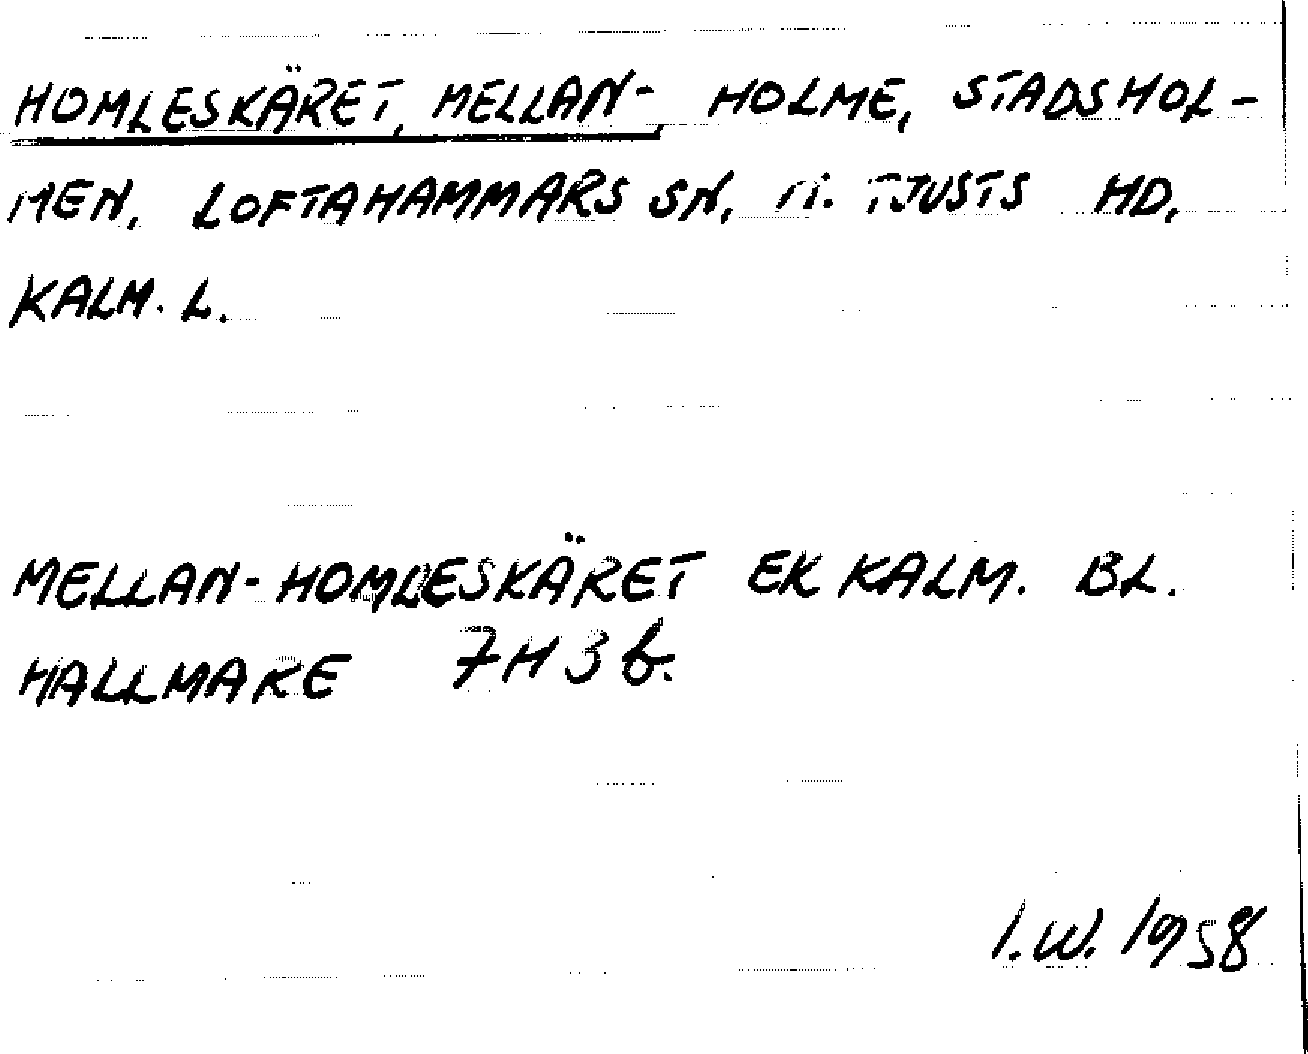 HOMLESKÄRET, MELLAN-, HOLME, STADSHOL-
MEN, LOFTAHAMMARS SN, N. TJUSTS HD,
KALM. L.
MELLAN-HOMLESKÄRET EK KALM. BL.
HALLMARE 7H3b.
I.W. 1958